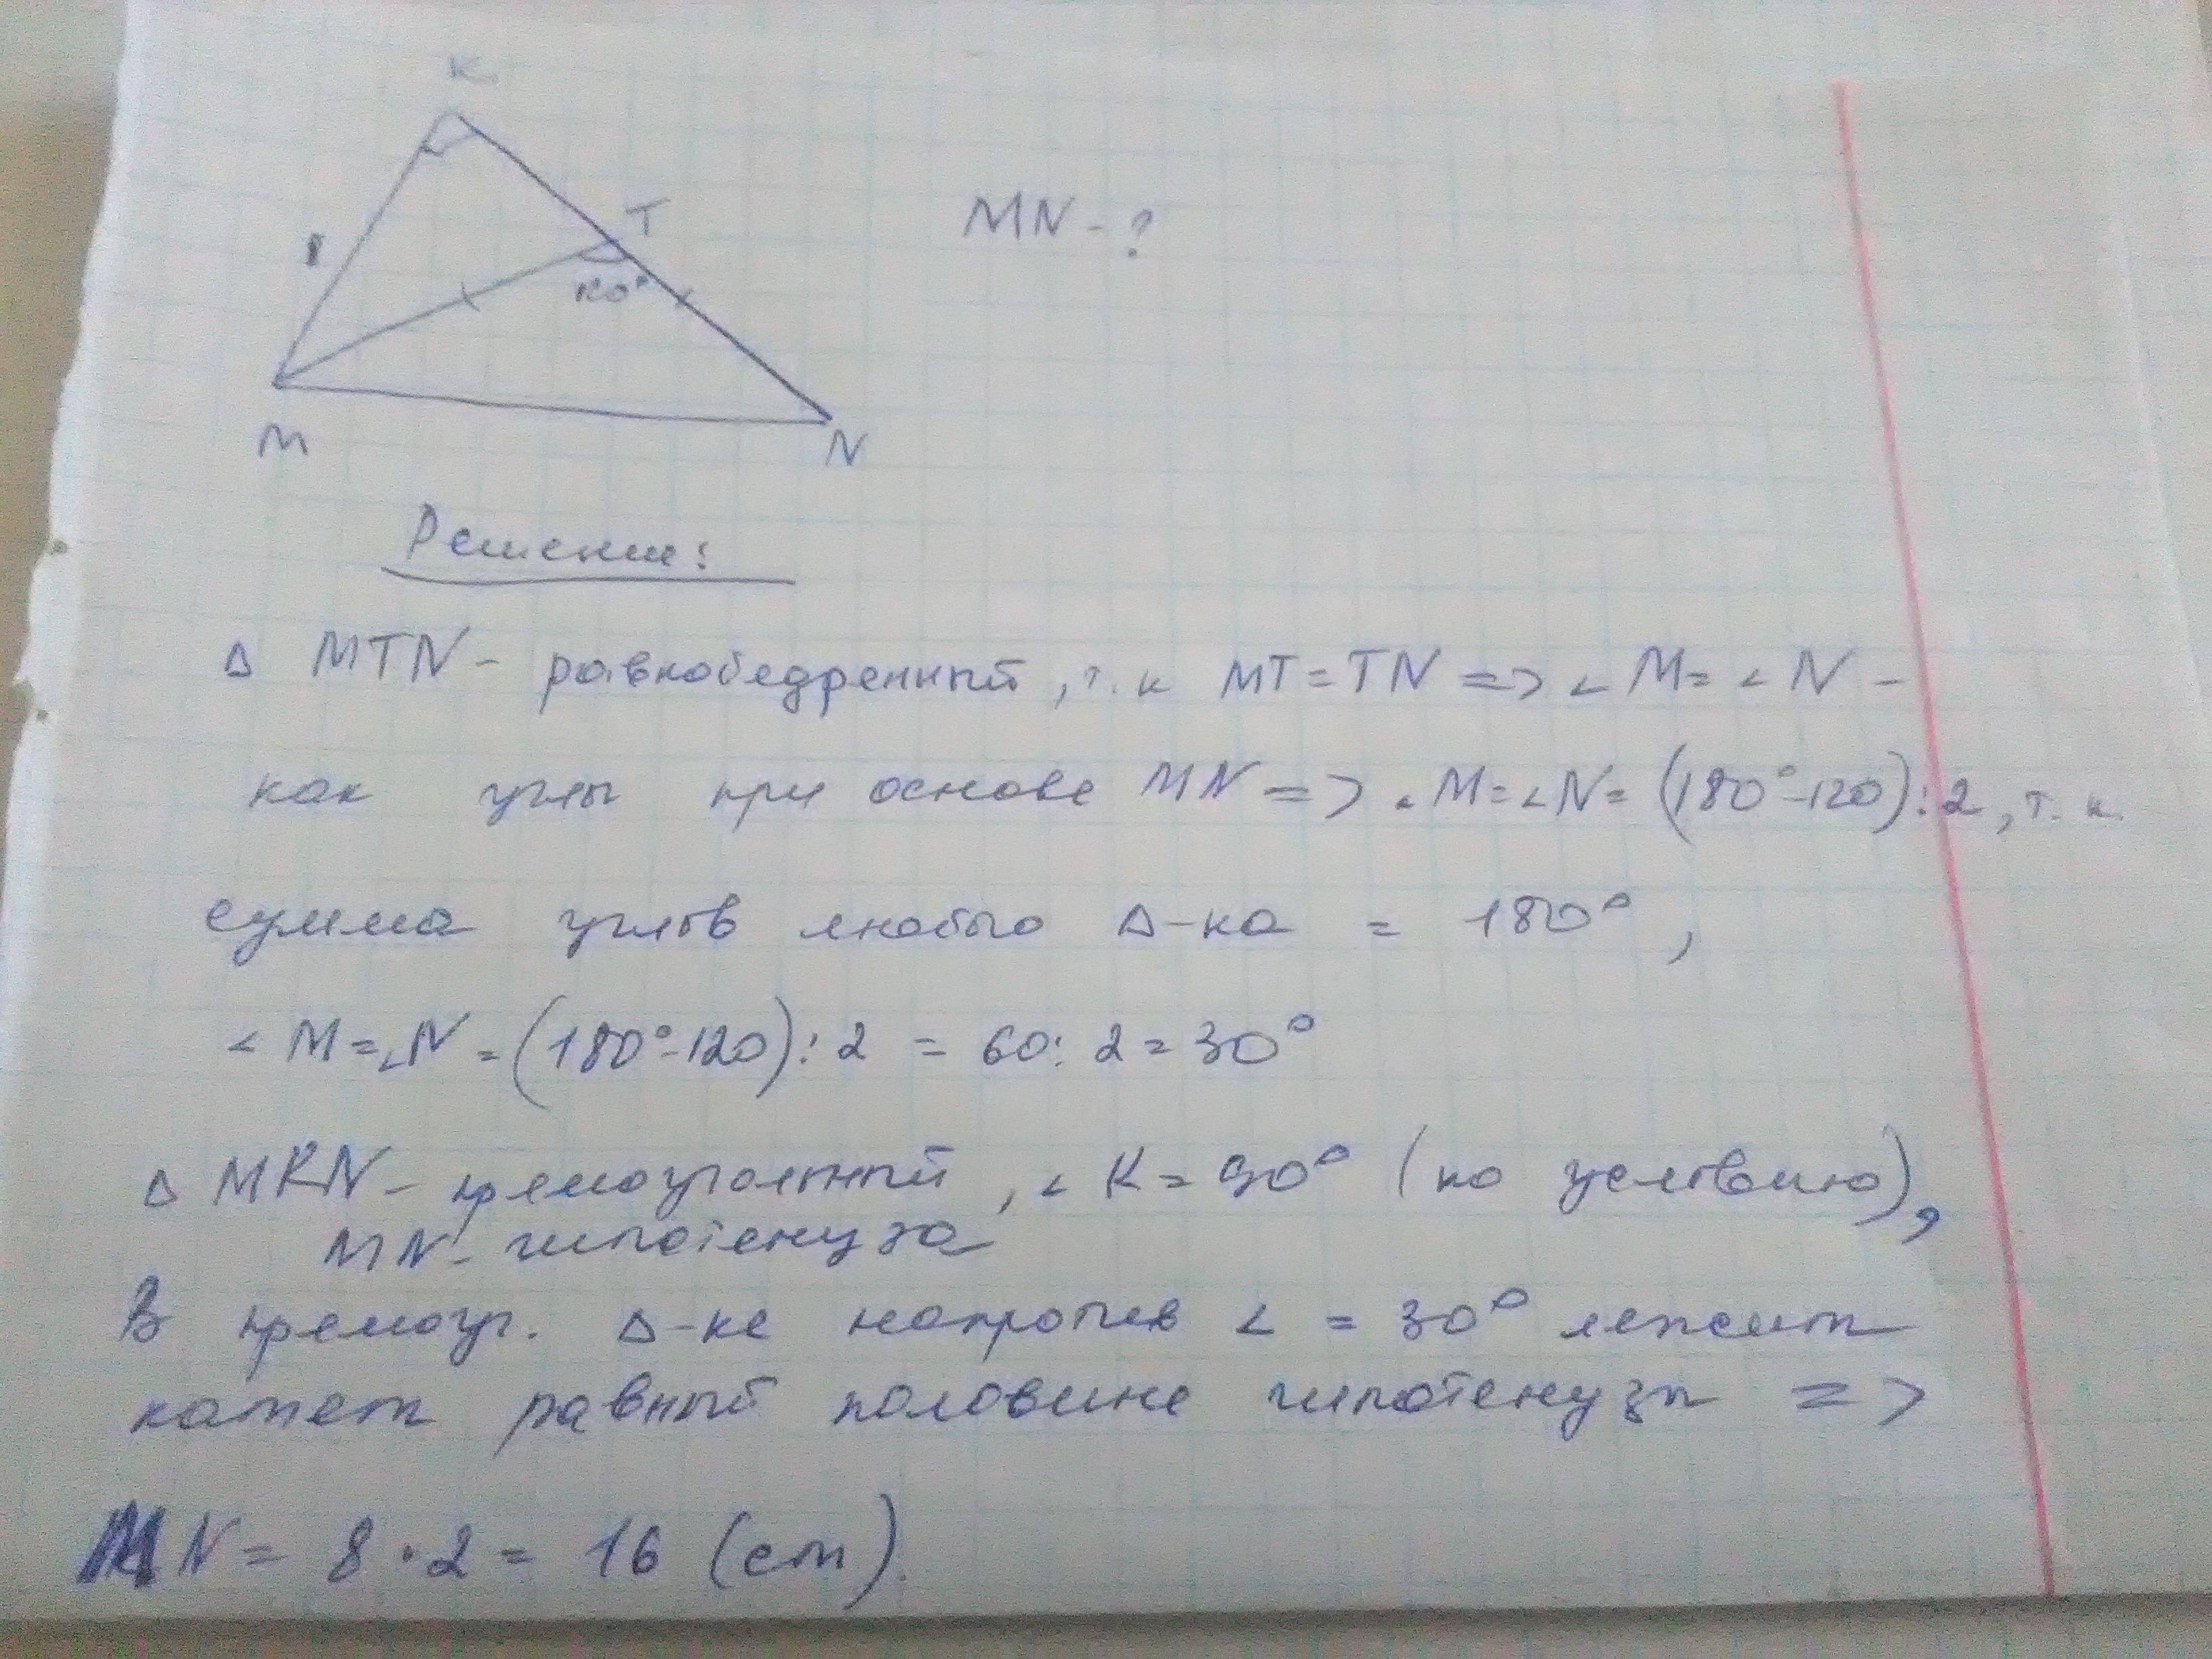 K
T
MN - ?
8
120°
M
N
Решение:
∆ MTN - равнобедренный, т.к MT = TN => ∠ M = ∠ N -
как углы при основе MN => ∠ M = ∠ N = (180° - 120) : 2, т.к.
сумма углов любого ∆-ка = 180°,
∠ M = ∠ N = (180° - 120) : 2 = 60 : 2 = 30°
∆ MKN - прямоугольный, ∠ K = 90° (по условию),
MN - гипотенуза
В прямоуг. ∆-ке напротив ∠ = 30° лежит
катет равный половине гипотенузы =>
MN = 8 · 2 = 16 (cm).